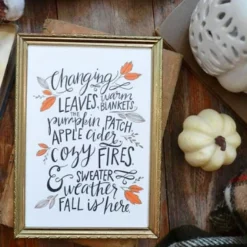 Changing
LEAVES, warm
BLANKETS,
THE
pumpkin PATCH,
APPLE cider,
cozy FIRES
& SWEATER
weather
FALL is here